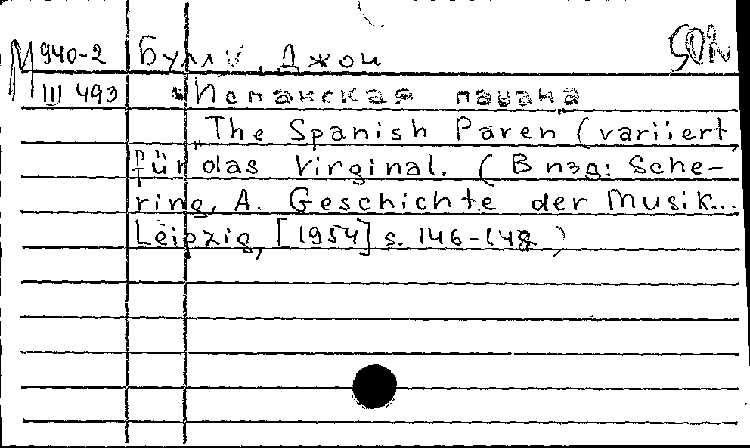 М 940-2 Булл, Джон
III 493 Испанская павана
"The Spanish Paven (variiert
für das Virginal. (В изд: Sche-
ring, A. Geschichte der Musik...
Leipzig, [1954] s. 146-148)